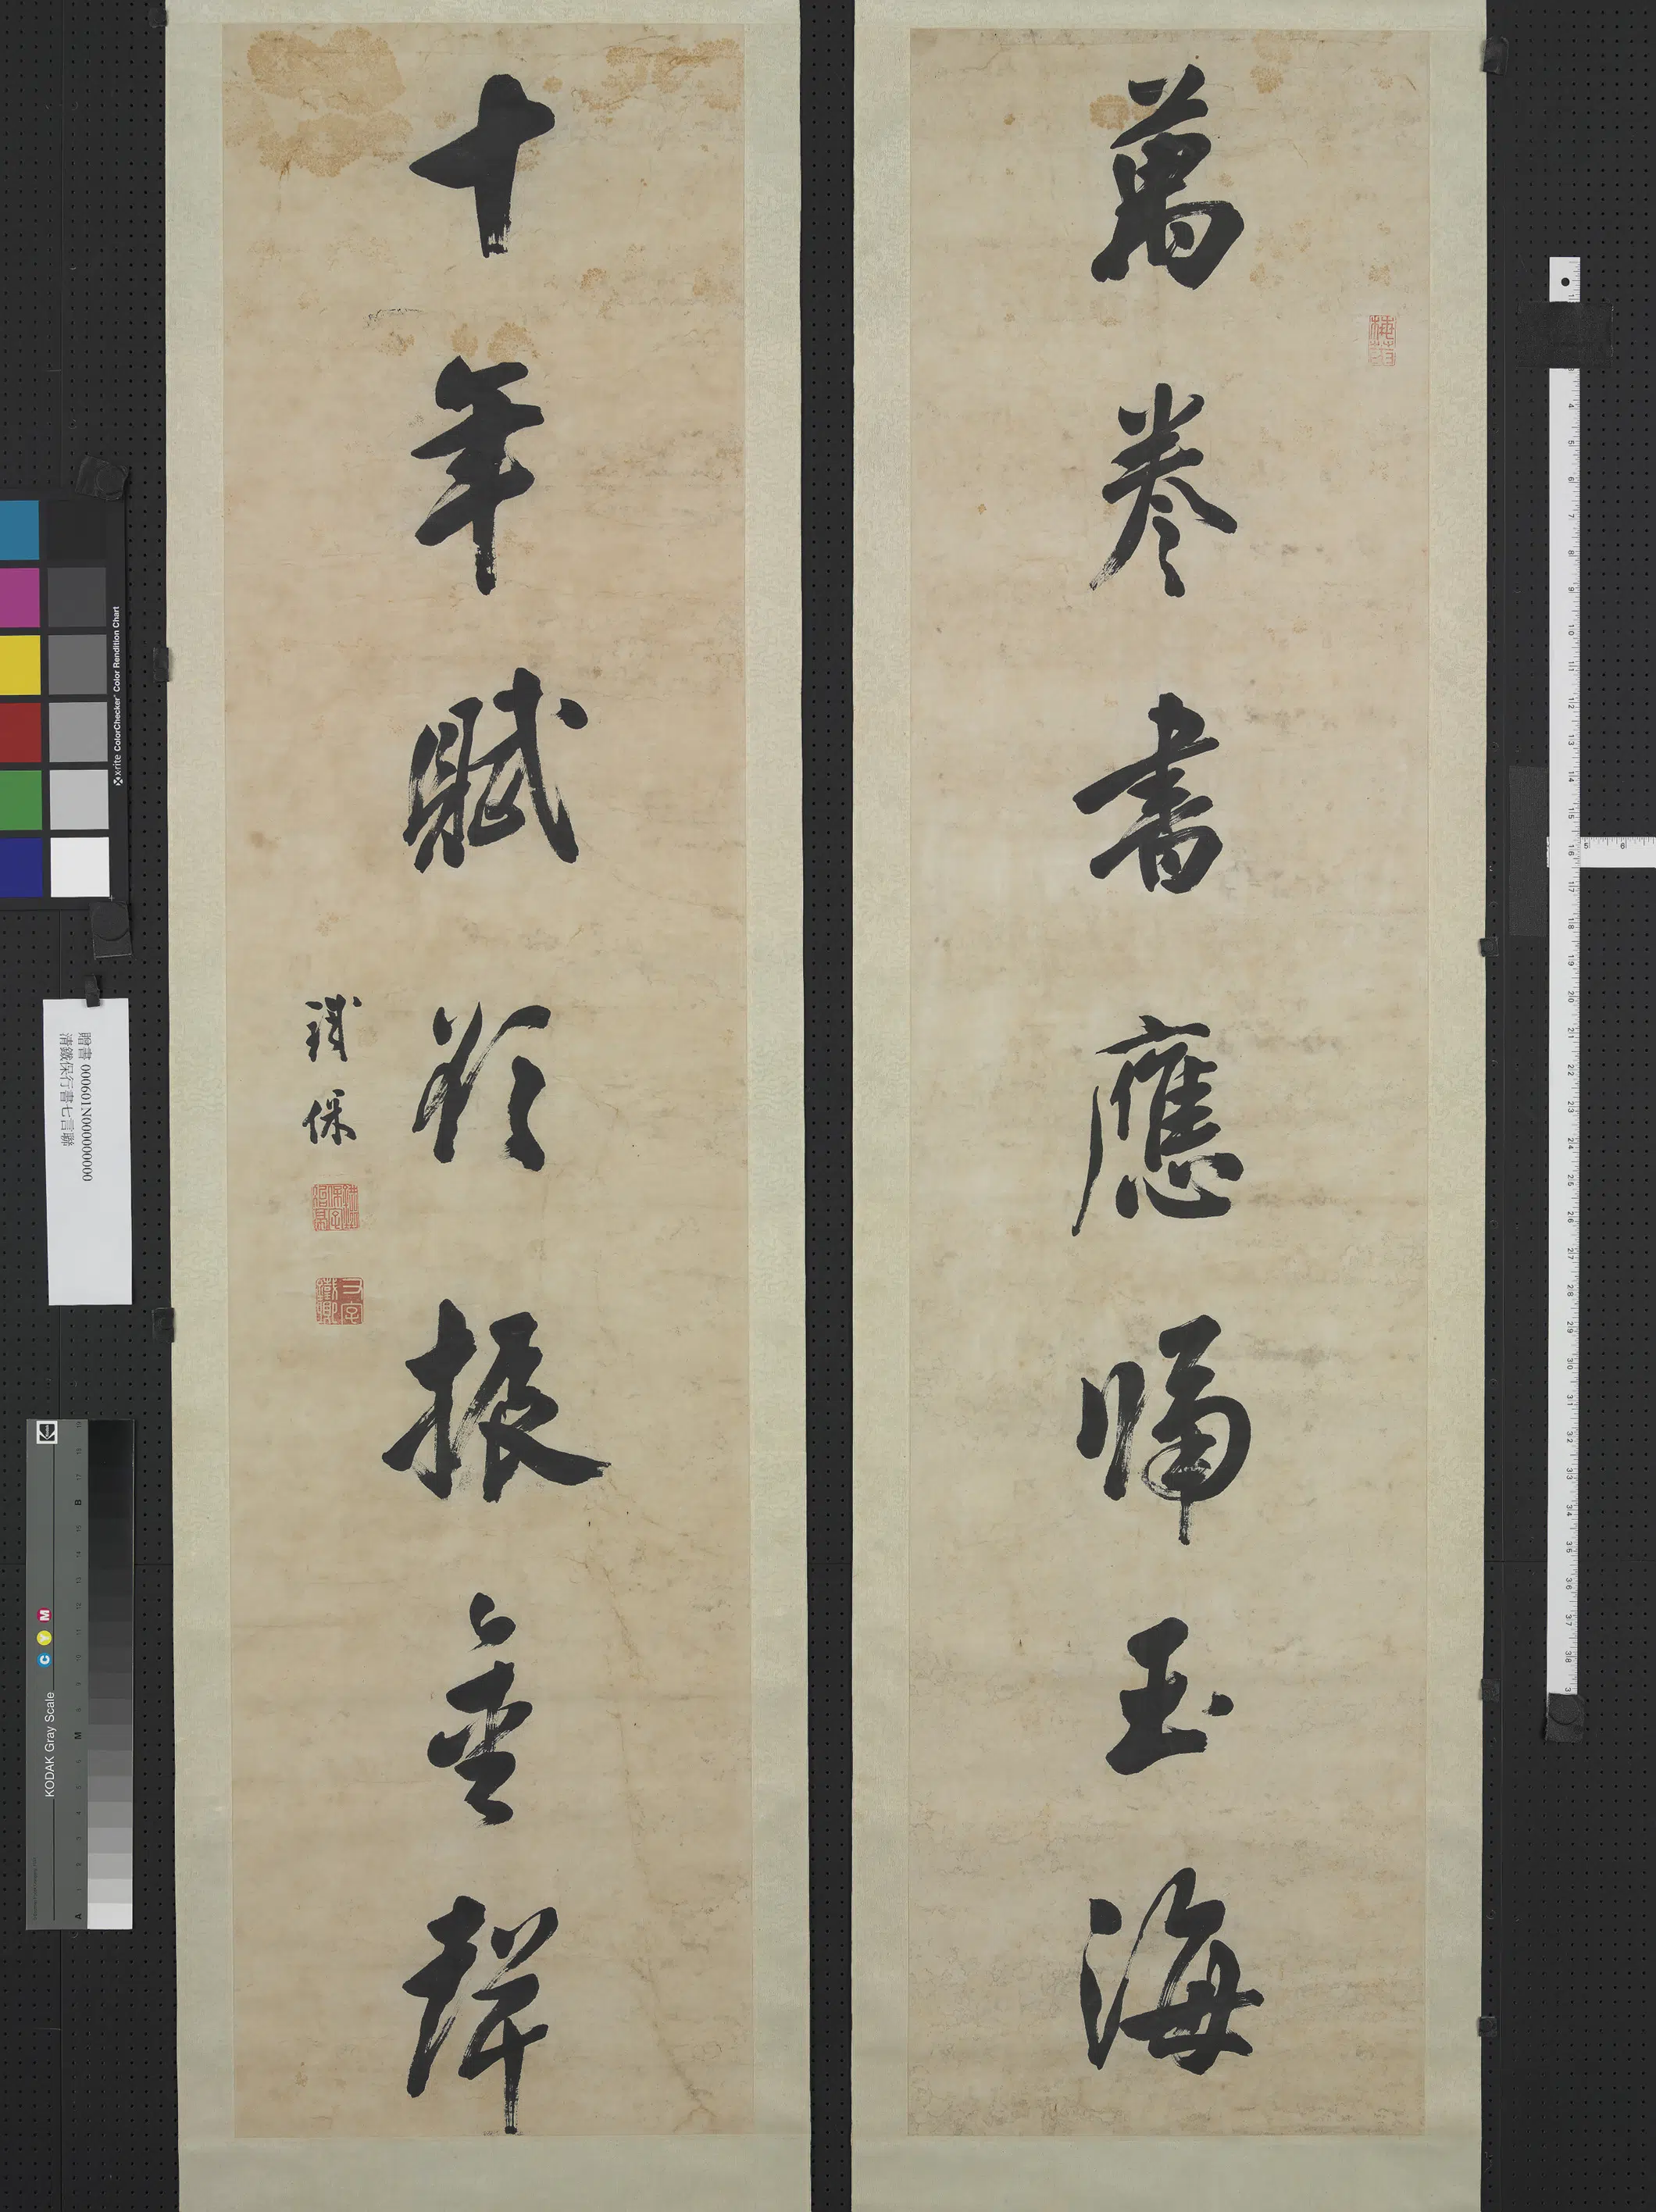 萬卷書應歸玉海
梅菴
十年賦欲振金聲
鐵保
又字鐵卿
贈書 000601N000000000
清鐵保行書七言聯
x-rite ColorChecker® Color Rendition Chart
KODAK Gray Scale
C Y M